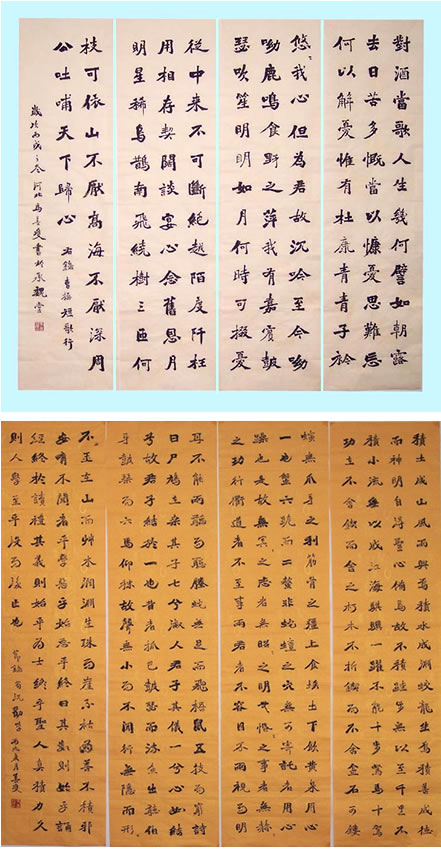 對酒當歌人生幾何譬如朝露
去日苦多慨當以慷憂思難忘
何以解憂惟有杜康青青子衿
悠々我心但為君故沉吟至今呦
呦鹿鳴食野之苹我有嘉賓鼓
瑟吹笙明明如月何時可掇憂
從中來不可斷絕越陌度阡枉
用相存契闊談宴心念舊恩月
明星稀烏鵲南飛繞樹三匝何
枝可依山不厭高海不厭深周
公吐哺天下歸心
右錄曹操短歌行
歲次丙戌之冬河北馬喜慶書於承觀堂
積土成山風雨興焉積水成淵蛟龍生焉積善成德
而神明自得聖心備焉故不積跬步無以至千里不
積小流無以成江海騏驥一躍不能十步駑馬十駕
功在不舍鍥而舍之朽木不折鍥而不舍金石可鏤
螾無爪牙之利筋骨之强上食埃土下飲黃泉用心
一也蟹六跪而二螯非蛇蟺之穴無可寄託者用心
躁也是故無冥々之志者無昭々之明無惛々之事者無
之功行衢道者不至事兩君者不容目不兩視而明
耳不能兩聽而聰螣蛇無足而飛梧鼠五技而窮詩
曰尸鳩在桑其子七兮淑人君子其儀一兮心如結
兮故君子結於一也昔者瓠巴鼓瑟而流魚出聽伯
牙鼓琴而六馬仰秣故聲無小而不聞行無隱而不形
玉在山而草木潤淵生珠而崖不枯為善不積邪
安有不聞者乎學惡乎始惡乎終曰其數則始乎誦
經終於讀禮其義則始乎為士終乎聖人真積力久
則入學至乎沒而後止也
節錄荀況勸學